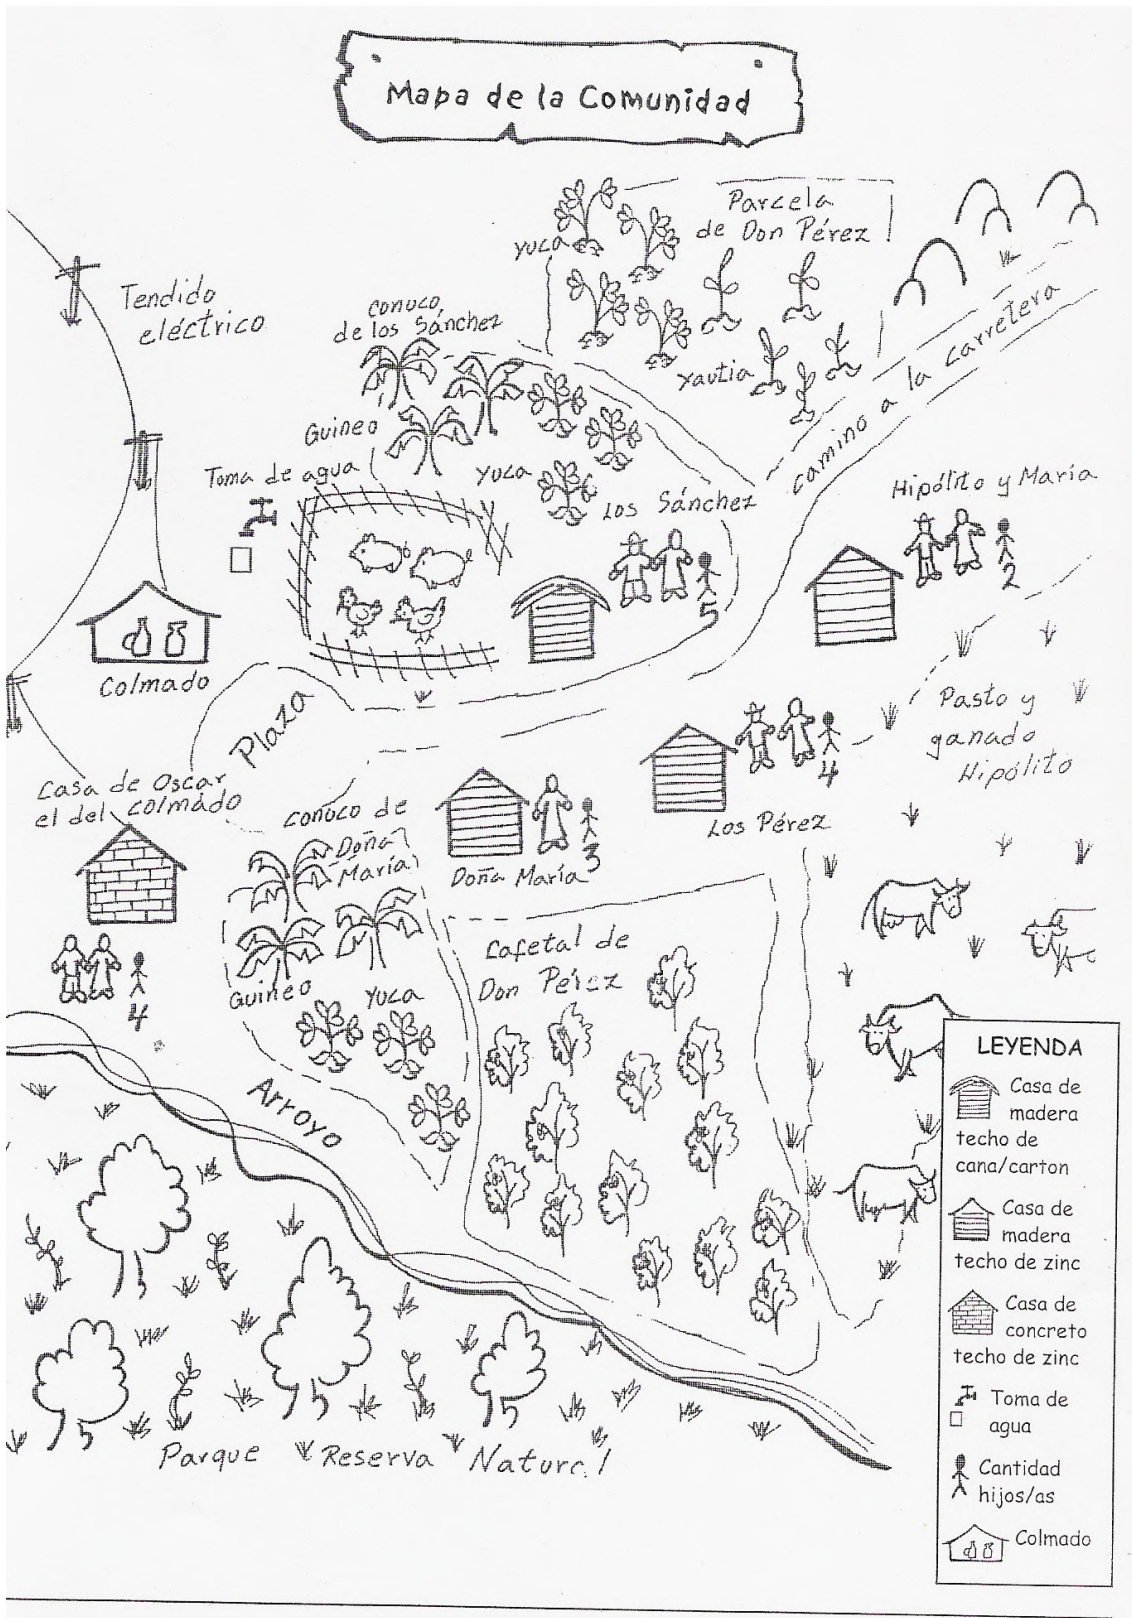 Mapa de la Comunidad
Parcela
de Don Pérez
Yuca
Tendido
eléctrico
conuco
de los Sánchez
Yautia
camino a la carretera
Guineo
Toma de agua
Yuca
Los Sánchez
5
Hipólito y María
2
Colmado
Plaza
Pasto y
ganado
Hipólito
Casa de Oscar
el del colmado
4
conuco de
Doña
María
Doña María
3
Los Pérez
4
Guineo
Yuca
Cafetal de
Don Pérez
Arroyo
Parque Reserva Natural
LEYENDA
Casa de
madera
techo de
cana/carton
Casa de
madera
techo de zinc
Casa de
concreto
techo de zinc
Toma de
agua
Cantidad
hijos/as
Colmado